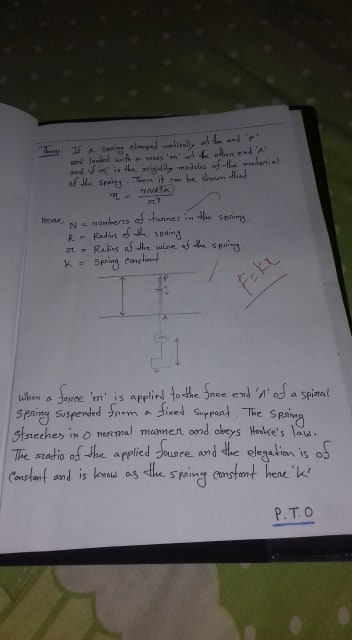 Theory: If a spring clamped vertically at the end 'P'
and loaded with a mass 'm' at the other end 'A'
and if 'n' is the rigidity modulus of the material
of the spring. Then it can be shown that
n = 4NR³k / r⁴
Here, N = numbers of turnes in the spring.
R = Radius of the spring
r = Radius of the wire of the spring.
K = Spring constant.
P
F=kx
A
m
When a force 'm' is applied to the free end 'A' of a spiral
spring suspended from a fixed support. The spring
streches in a normal manner and obeys Hooke's law.
The ratio of the applied fource and the elegation is of
Constant and is know as the spring constant here 'k'
P.T.O